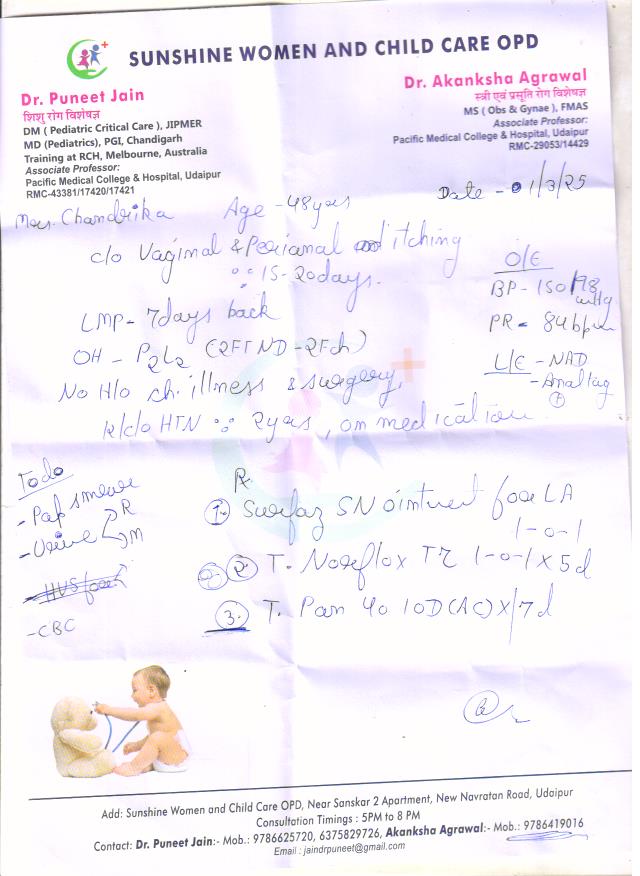 SUNSHINE WOMEN AND CHILD CARE OPD
Dr. Puneet Jain
शिशु रोग विशेषज्ञ
DM ( Pediatric Critical Care ), JIPMER
MD (Pediatrics), PGI, Chandigarh
Training at RCH, Melbourne, Australia
Associate Professor:
Pacific Medical College & Hospital, Udaipur
RMC-43381/17420/17421
Dr. Akanksha Agrawal
स्त्री एवं प्रसूति रोग विशेषज्ञ
MS ( Obs & Gynae ), FMAS
Associate Professor:
Pacific Medical College & Hospital, Udaipur
RMC-29053/14429
Date - 1/3/25
Mrs. Chandrika Age - 48 years
c/o Vaginal & Perianal itching
∵ 15-20 days.
LMP - 7 days back
OH - P2L2 (2FTND - 2Fch)
No H/o ch. illness & surgery,
k/c/o HTN ∵ 2 years, on medication.
O/E
BP - 150/98 mmHg
PR - 84 bpm
L/E - NAD
- Anal tag
To do
- Pap smear
- Urine R
M
- CBC
Rx
1. Surfaz SN ointment for LA
1-0-1
2. T. Norflox TZ 1-0-1 x 5d
3. T. Pan 40 1OD (AC) x 7d
Add: Sunshine Women and Child Care OPD, Near Sanskar 2 Apartment, New Navratan Road, Udaipur
Consultation Timings : 5PM to 8 PM
Contact: Dr. Puneet Jain:- Mob.: 9786625720, 6375829726, Akanksha Agrawal:- Mob.: 9786419016
Email : jaindrpuneet@gmail.com